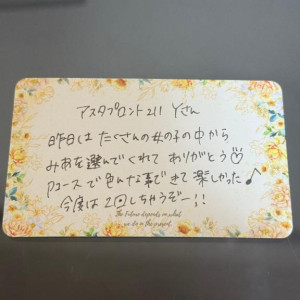 アスタプロント211 Yさん
昨日は たくさんの女の子の中から
みあを選んでくれて ありがとう♡
Pコースで色んな事できて楽しかった♪
今度は2回しちゃうぞー!!
The Future depends on what
we do in the present